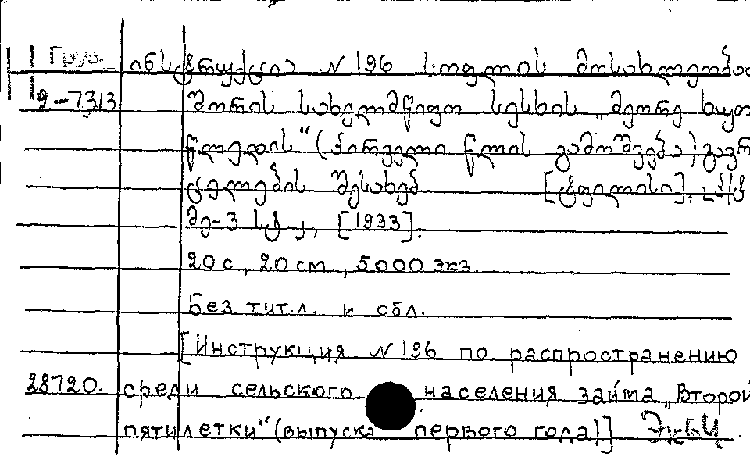 Груз. ინსტრუქცია N 196 სოფლის მოსახლეობა
9-7313 შორის სახელმწიფო სესხის „მეორე ხუთ
წლედის“ (პირველი წლის გამოშვება) გავრ
ცელების შესახებ [ტფილისი],
მე-3 სტ., [1933].
20 с., 20 см., 5.000 экз.
Без тит. л. и обл.
[Инструкция N 196 по распространению
28720. среди сельского населения займа „Второй
пятилетки“ (выпуска первого года)]